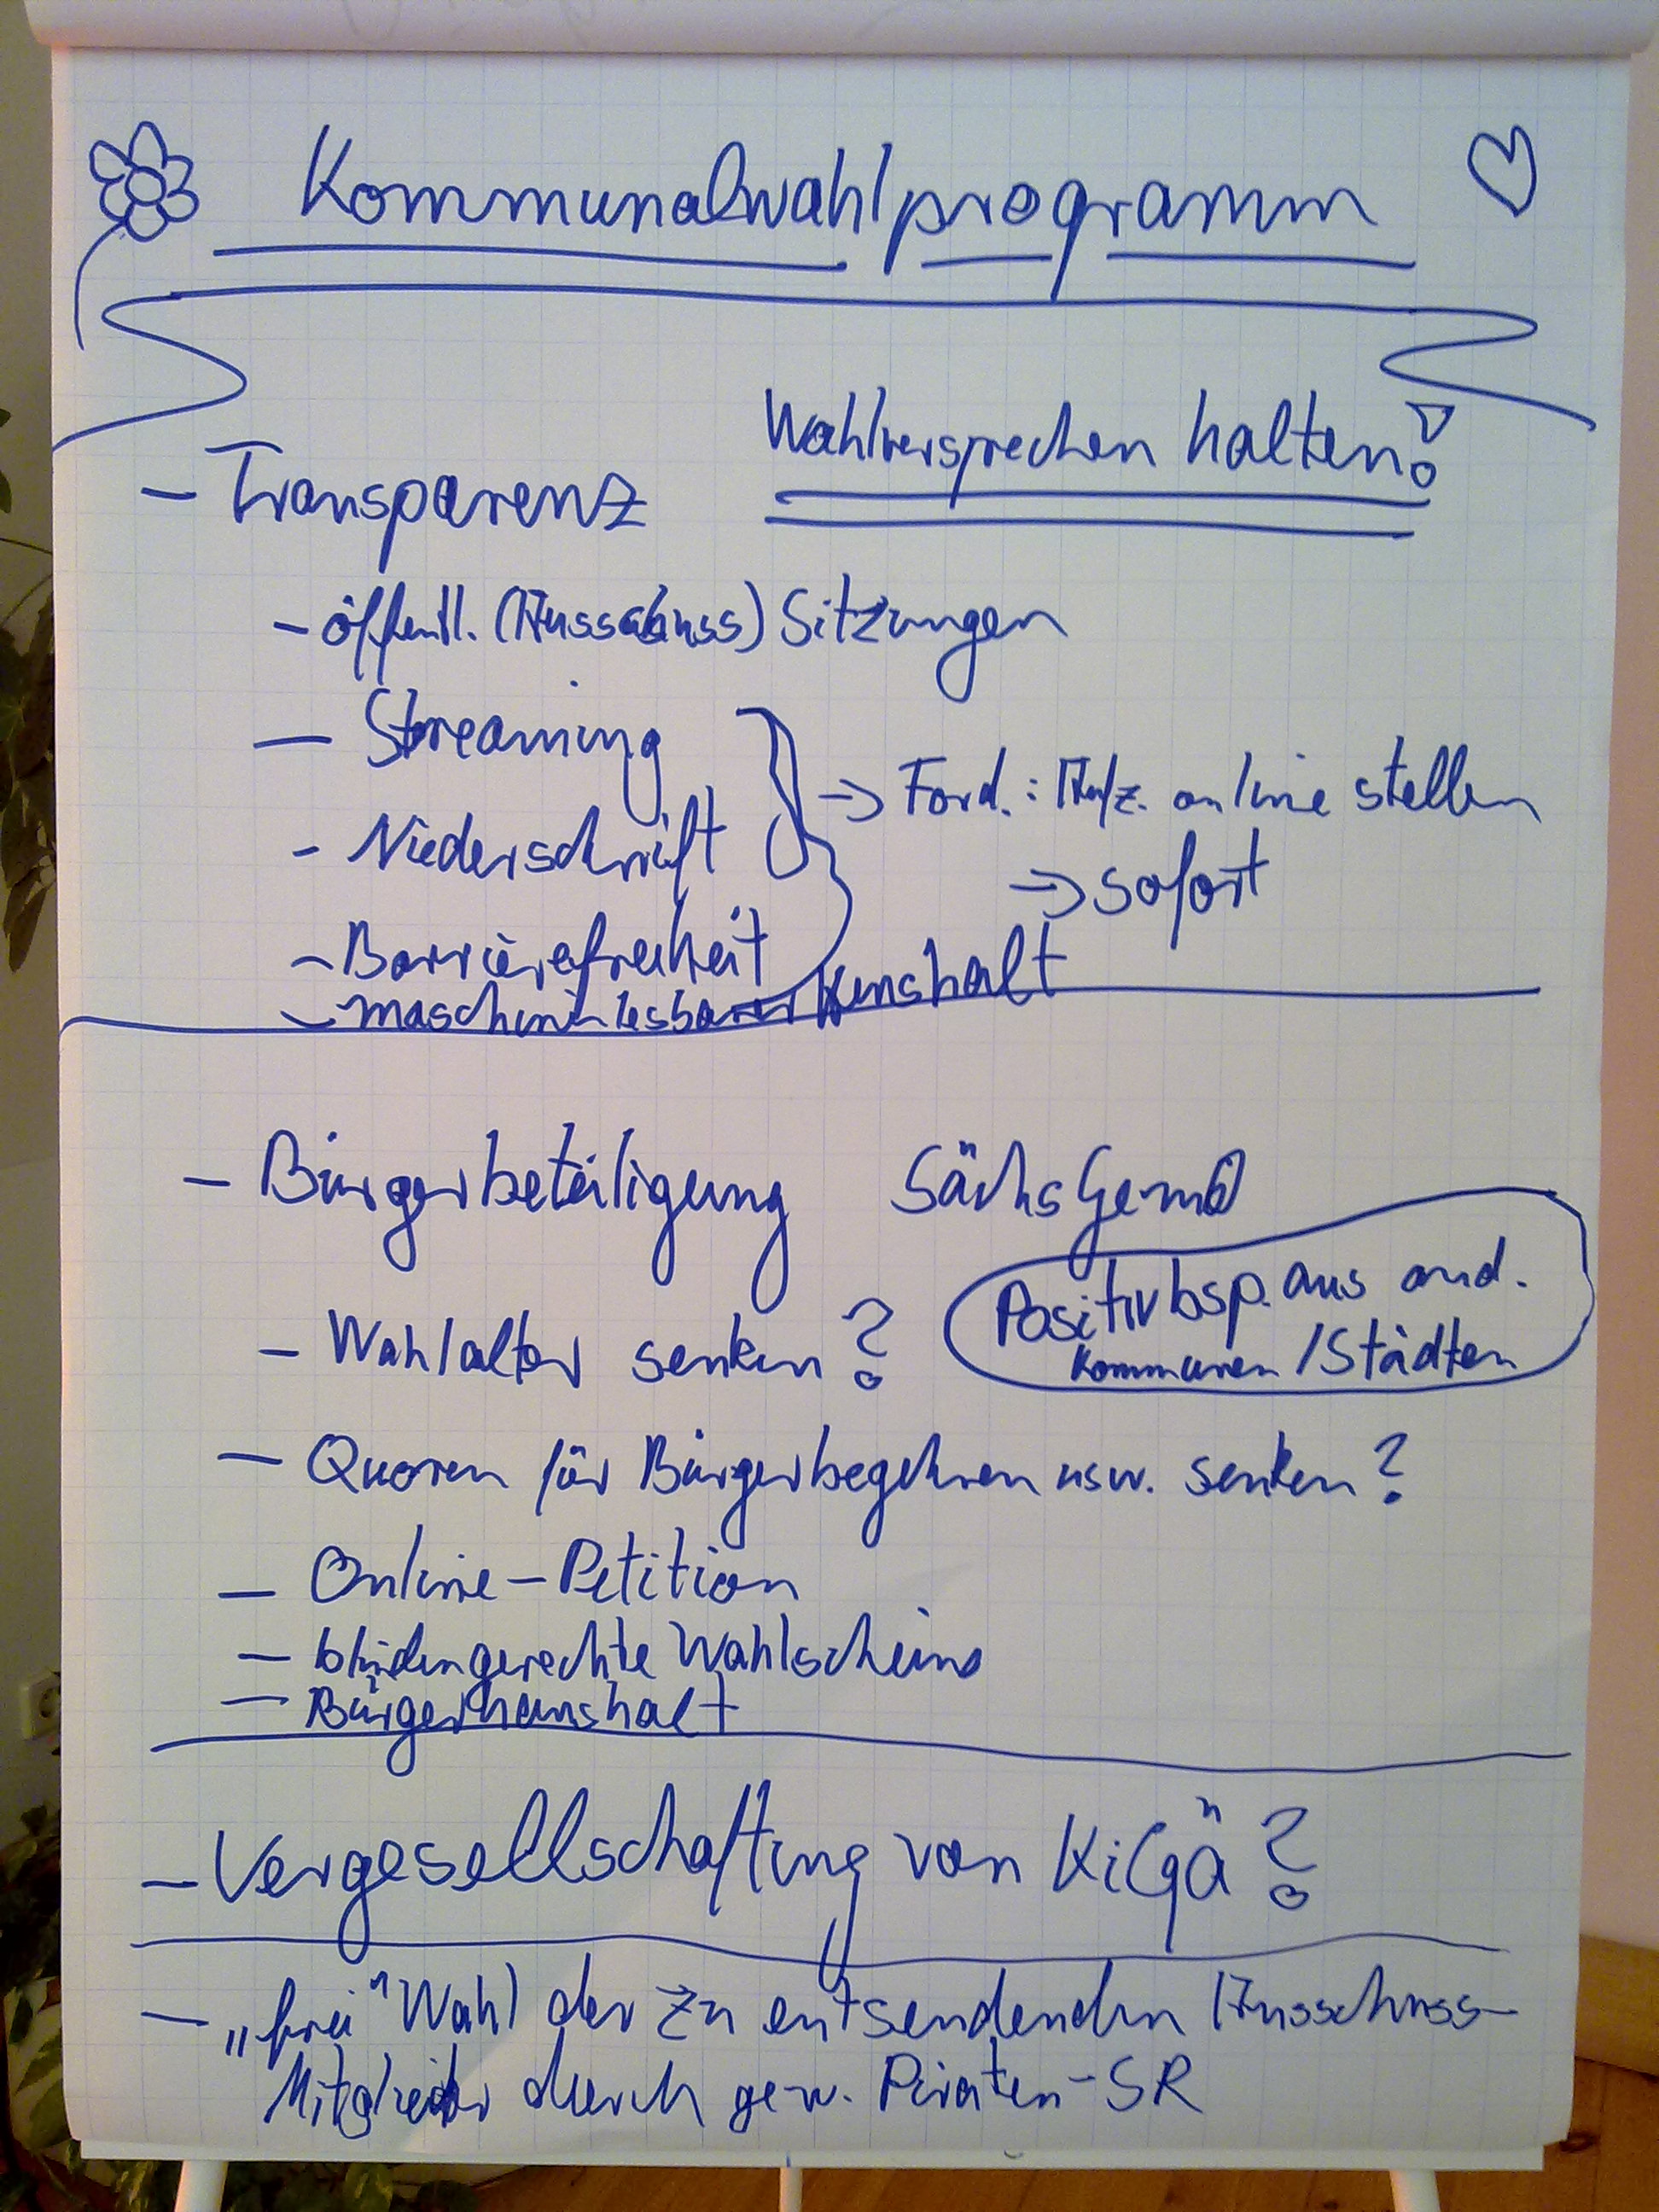 Kommunalwahlprogramm
Wahlversprechen halten!
- Transparenz
- öffentl. (Ausschuss) Sitzungen
- Streaming
- Niederschrift
→ Ford.: Aufz. online stellen
→ sofort
- Barrierefreiheit
- maschinenlesbarer Haushalt
- Bürgerbeteiligung SächsGemO
Positivbsp. aus and.
Kommunen / Städten
- Wahlalter senken?
- Quoren für Bürgerbegehren usw. senken?
- Online-Petition
- blindengerechte Wahlscheine
- Bürgerhaushalt
- Vergesellschaftung von KiGä?
- „freie" Wahl der zu entsendenden Ausschuss-
Mitglieder durch gew. Piraten-SR